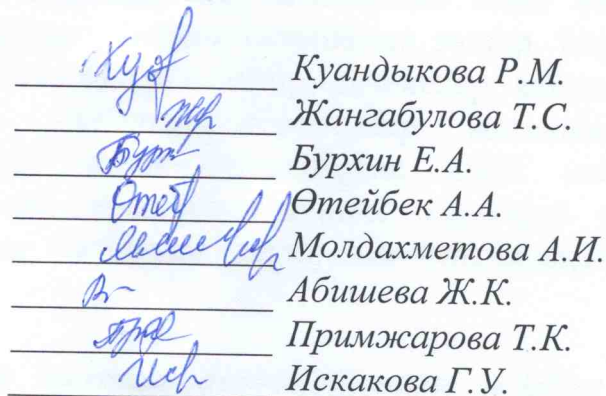 Куандыкова Р.М.
Жангабулова Т.С.
Бурхин Е.А.
Өтейбек А.А.
Молдахметова А.И.
Абишева Ж.К.
Примжарова Т.К.
Искакова Г.У.